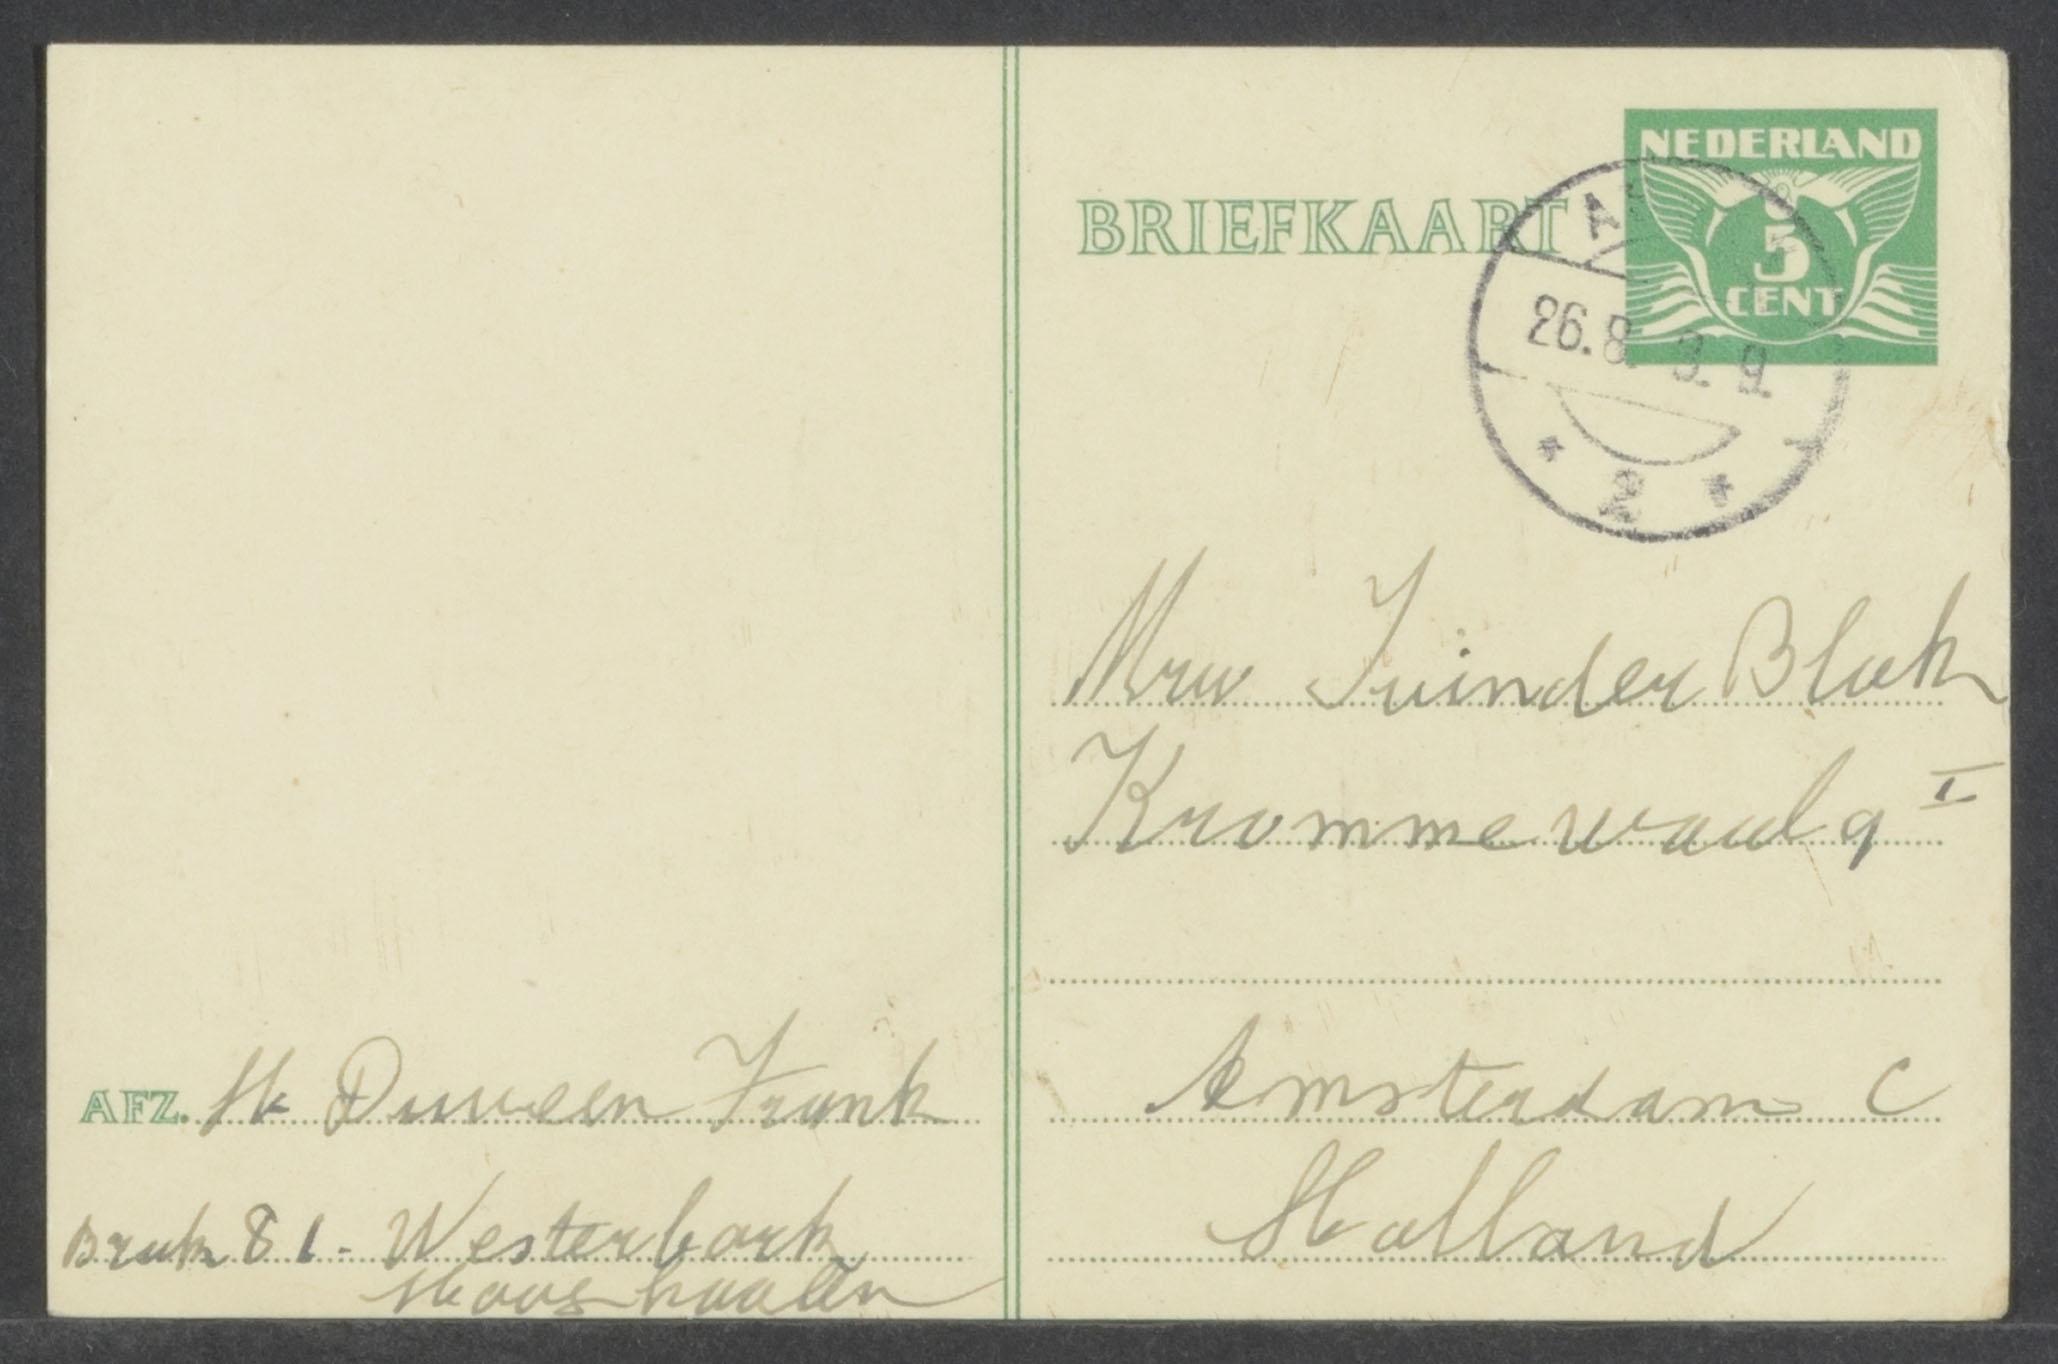 NEDERLAND
5
CENT
BRIEFKAART
26.8. 3. 9.
2
Mrw Tuinder Blok
Krommewaal 9 I
Amsterdam C
Holland
AFZ. H. Duveen Frank
Brak 81 - Westerbork
Hooghaalen